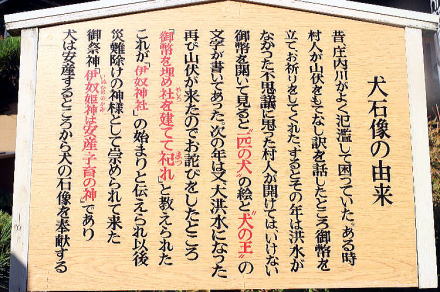 犬石像の由来
昔、庄内川がよく氾濫して困っていた。ある時
村人が山伏をもてなし訳を話したところ御幣を
立て、お祈りをしてくれた。するとその年は洪水が
なかった不思議に思った村人が開けてはいけない
御幣を開いて見ると“一匹の犬”の絵と“犬の王”の
文字が書いてあった。次の年は又大洪水になった
再び山伏が来たのでお詫びをしたところ
「御幣を埋め社を建てて祀れ」と教えられた
これが「伊奴神社」の始まりと伝えられ以後
災難除けの神様として崇められて来た
御祭神伊奴姫神は安産・子育の神であり
犬は安産するところから犬の石像を奉献する